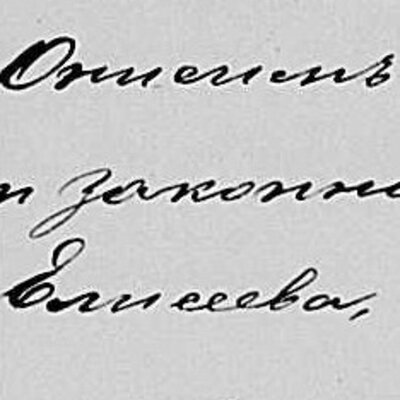 Онисимъ
и законно
Елисеева,